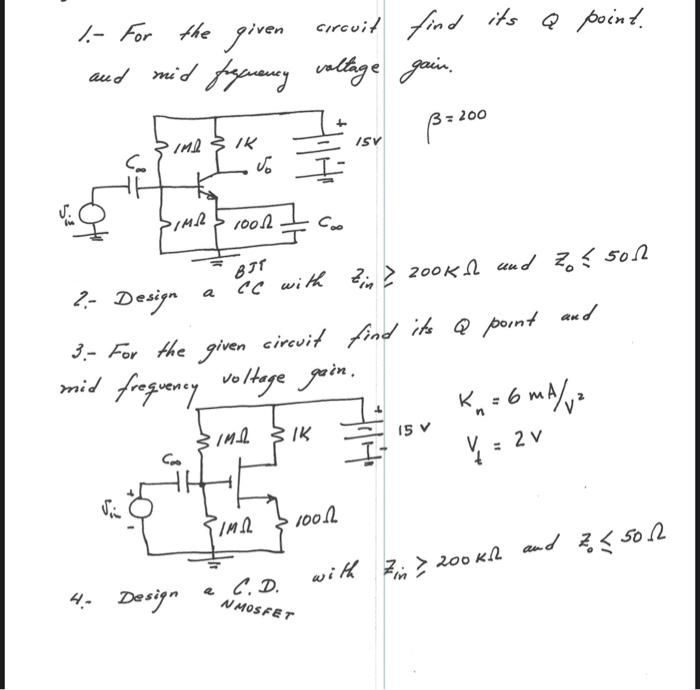 1.- For the given circuit find its Q point.
and mid frequency voltage gain.
β = 200
1MΩ 1K + 15V
C∞ Vo -
Vin
1MΩ 100Ω C∞
BJT
2.- Design a CC with Zin ≥ 200KΩ and Zo ≤ 50Ω
3.- For the given circuit find its Q point and
mid frequency voltage gain.
Kn = 6 mA/V²
Vt = 2V
1MΩ 1K + 15V
C∞ -
Vin + -
1MΩ 100Ω
4.- Design a C.D. with Zin ≥ 200KΩ and Zo ≤ 50Ω
NMOSFET